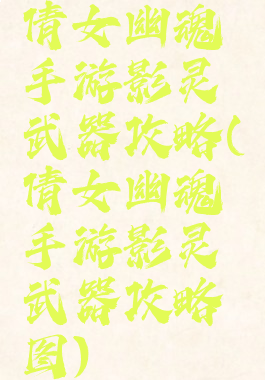 倩女幽魂
手游影灵
武器攻略(
倩女幽魂
手游影灵
武器攻略
图)